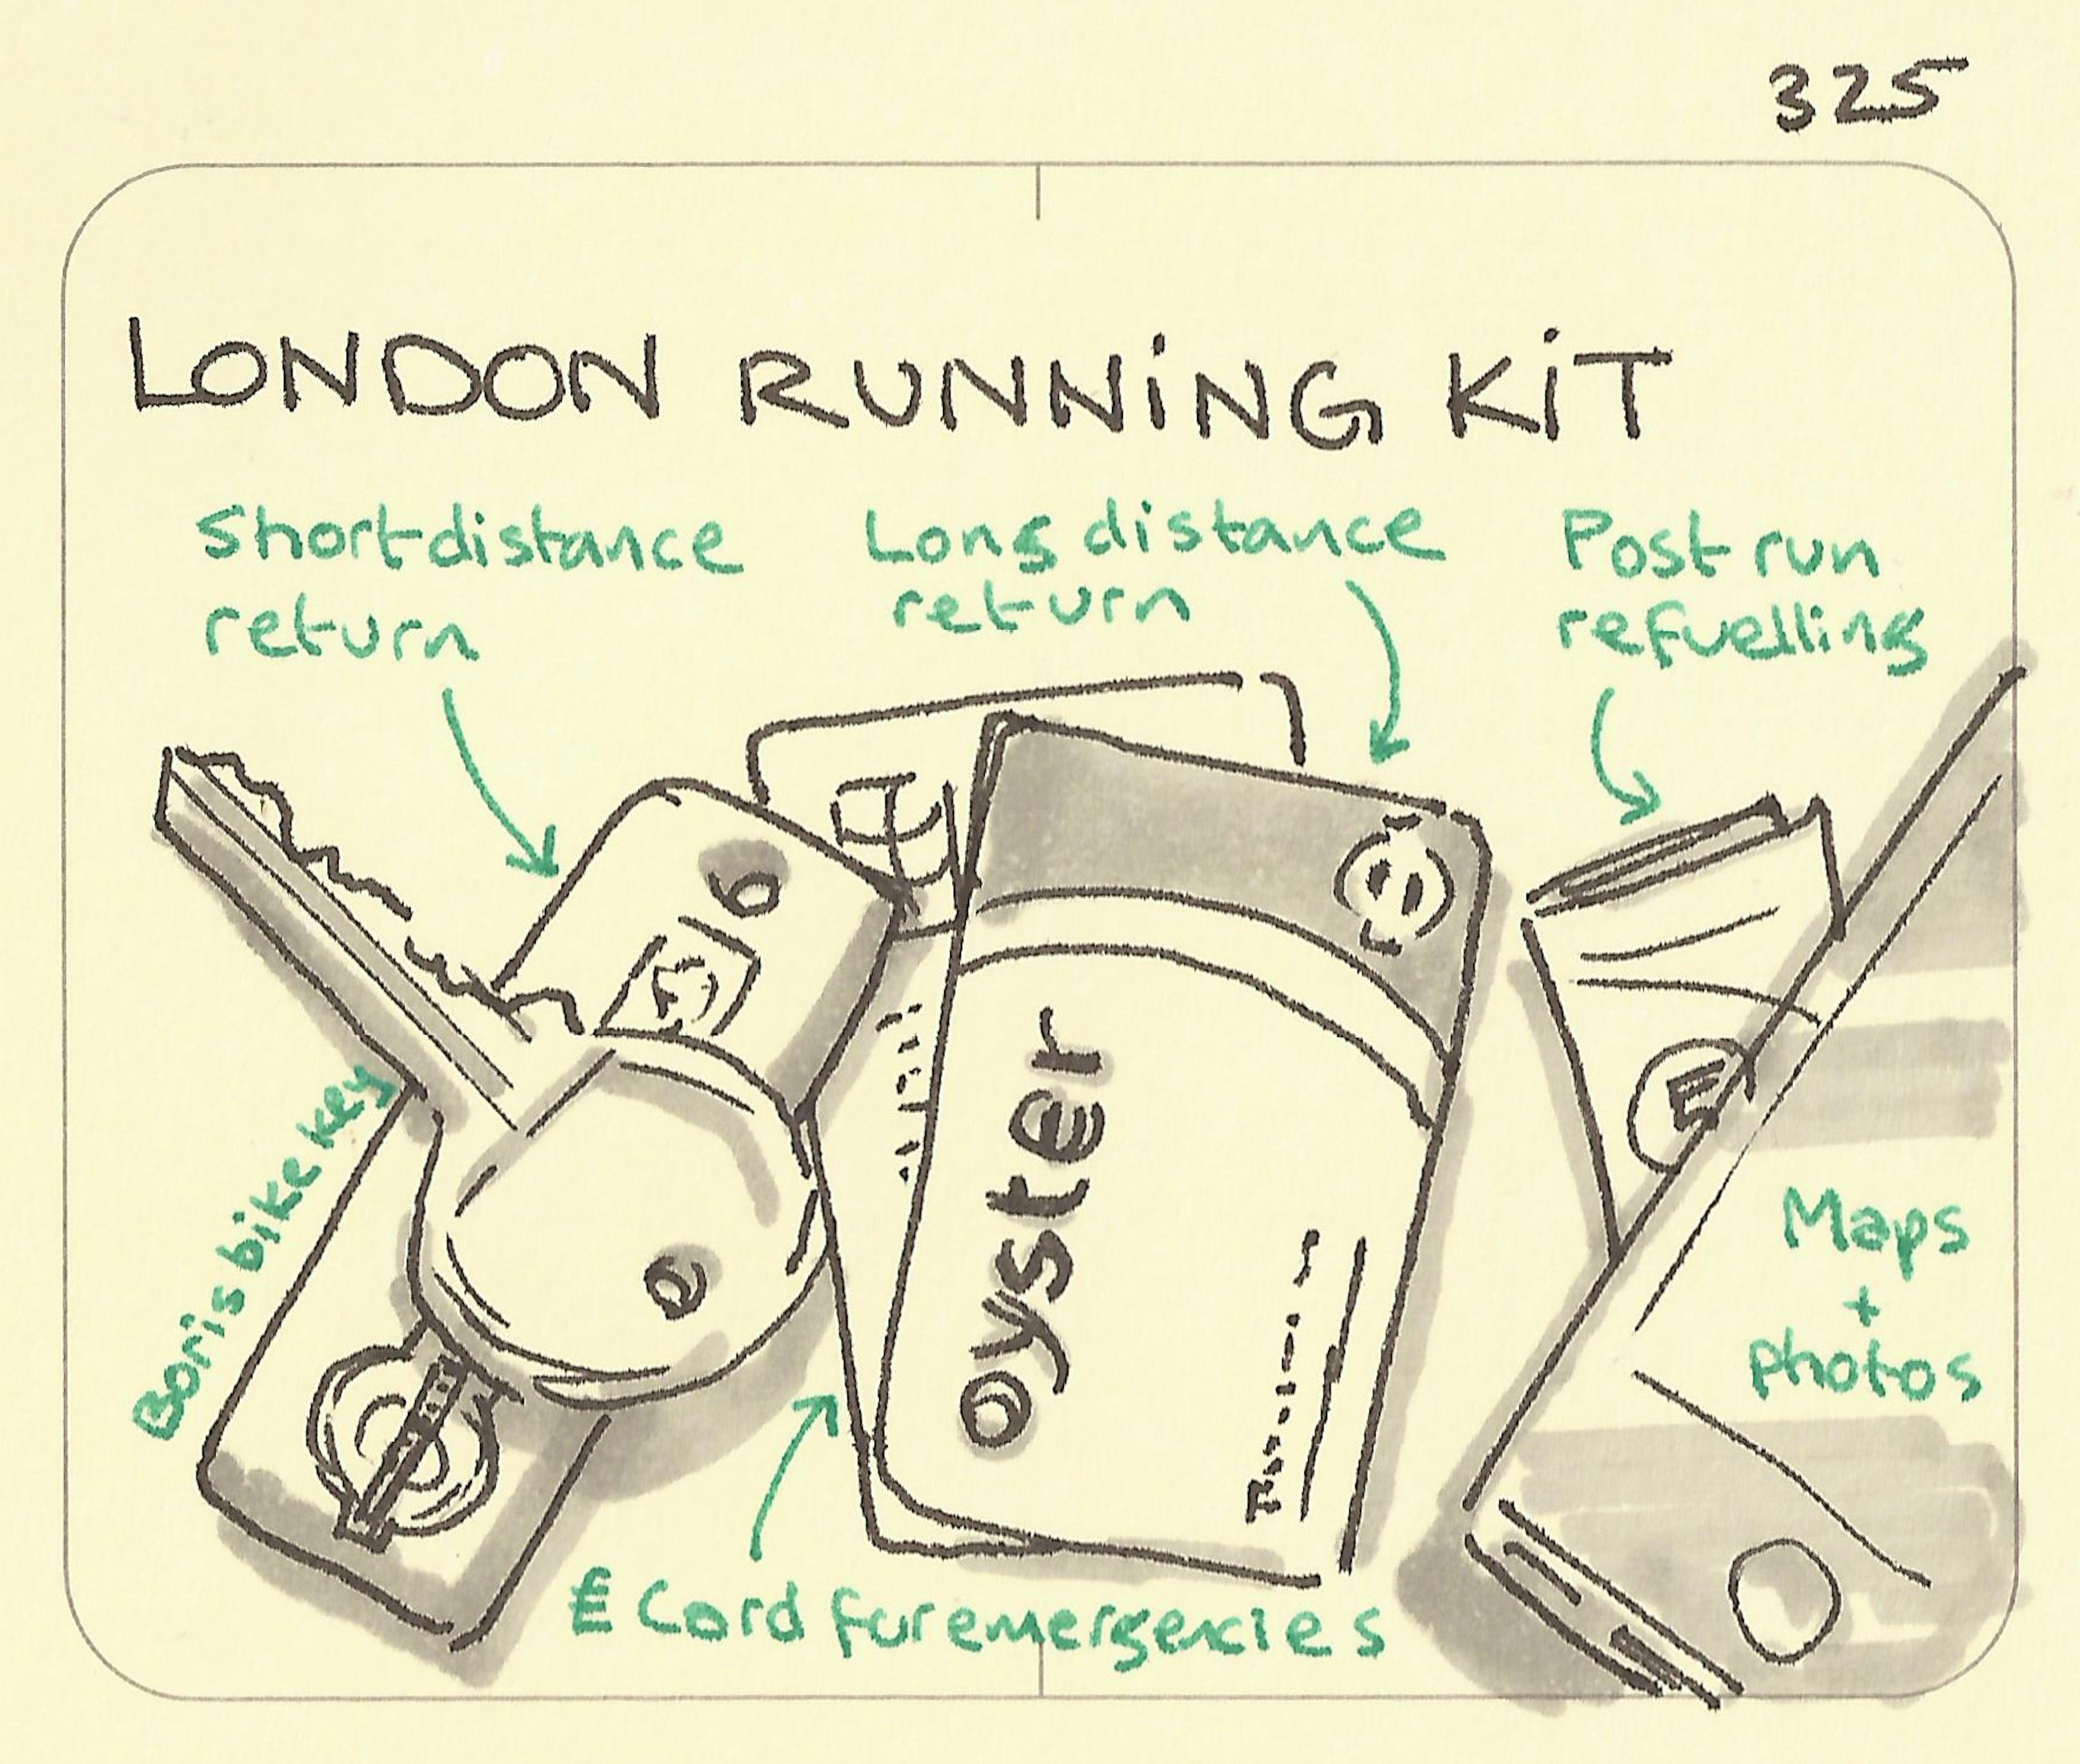 325
LONDON RUNNiNG KiT
Short distance
return
Long distance
return
Post run
refuelling
6
oyster
Boris bike key
Maps
+
photos
£ Card for emergencies